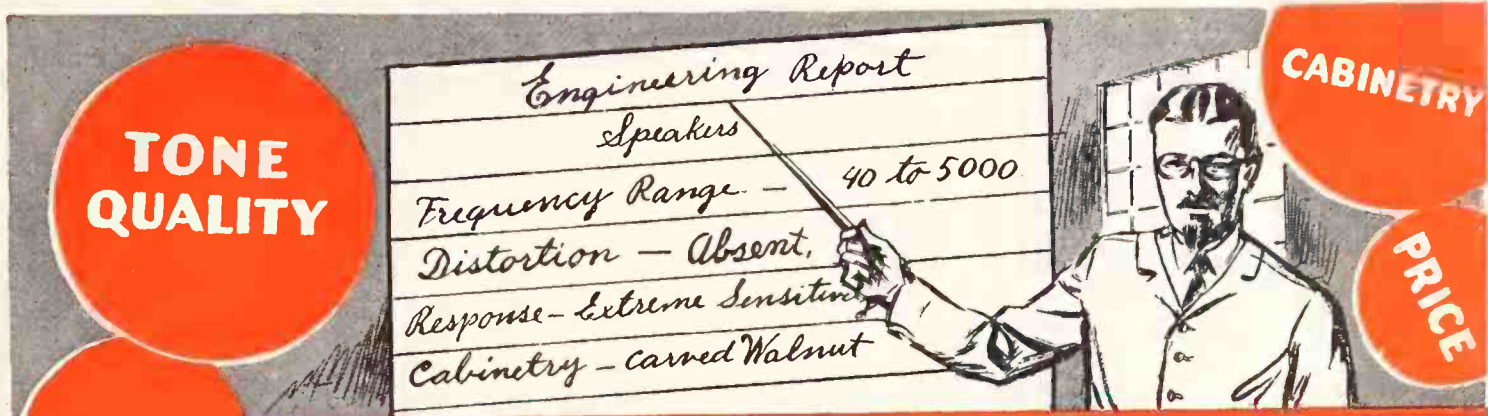 TONE
QUALITY
Engineering Report
Speakers
Frequency Range - 40 to 5000
Distortion — Absent.
Response - Extreme
Cabinetry - Carved Walnut
CABINETRY
PRICE